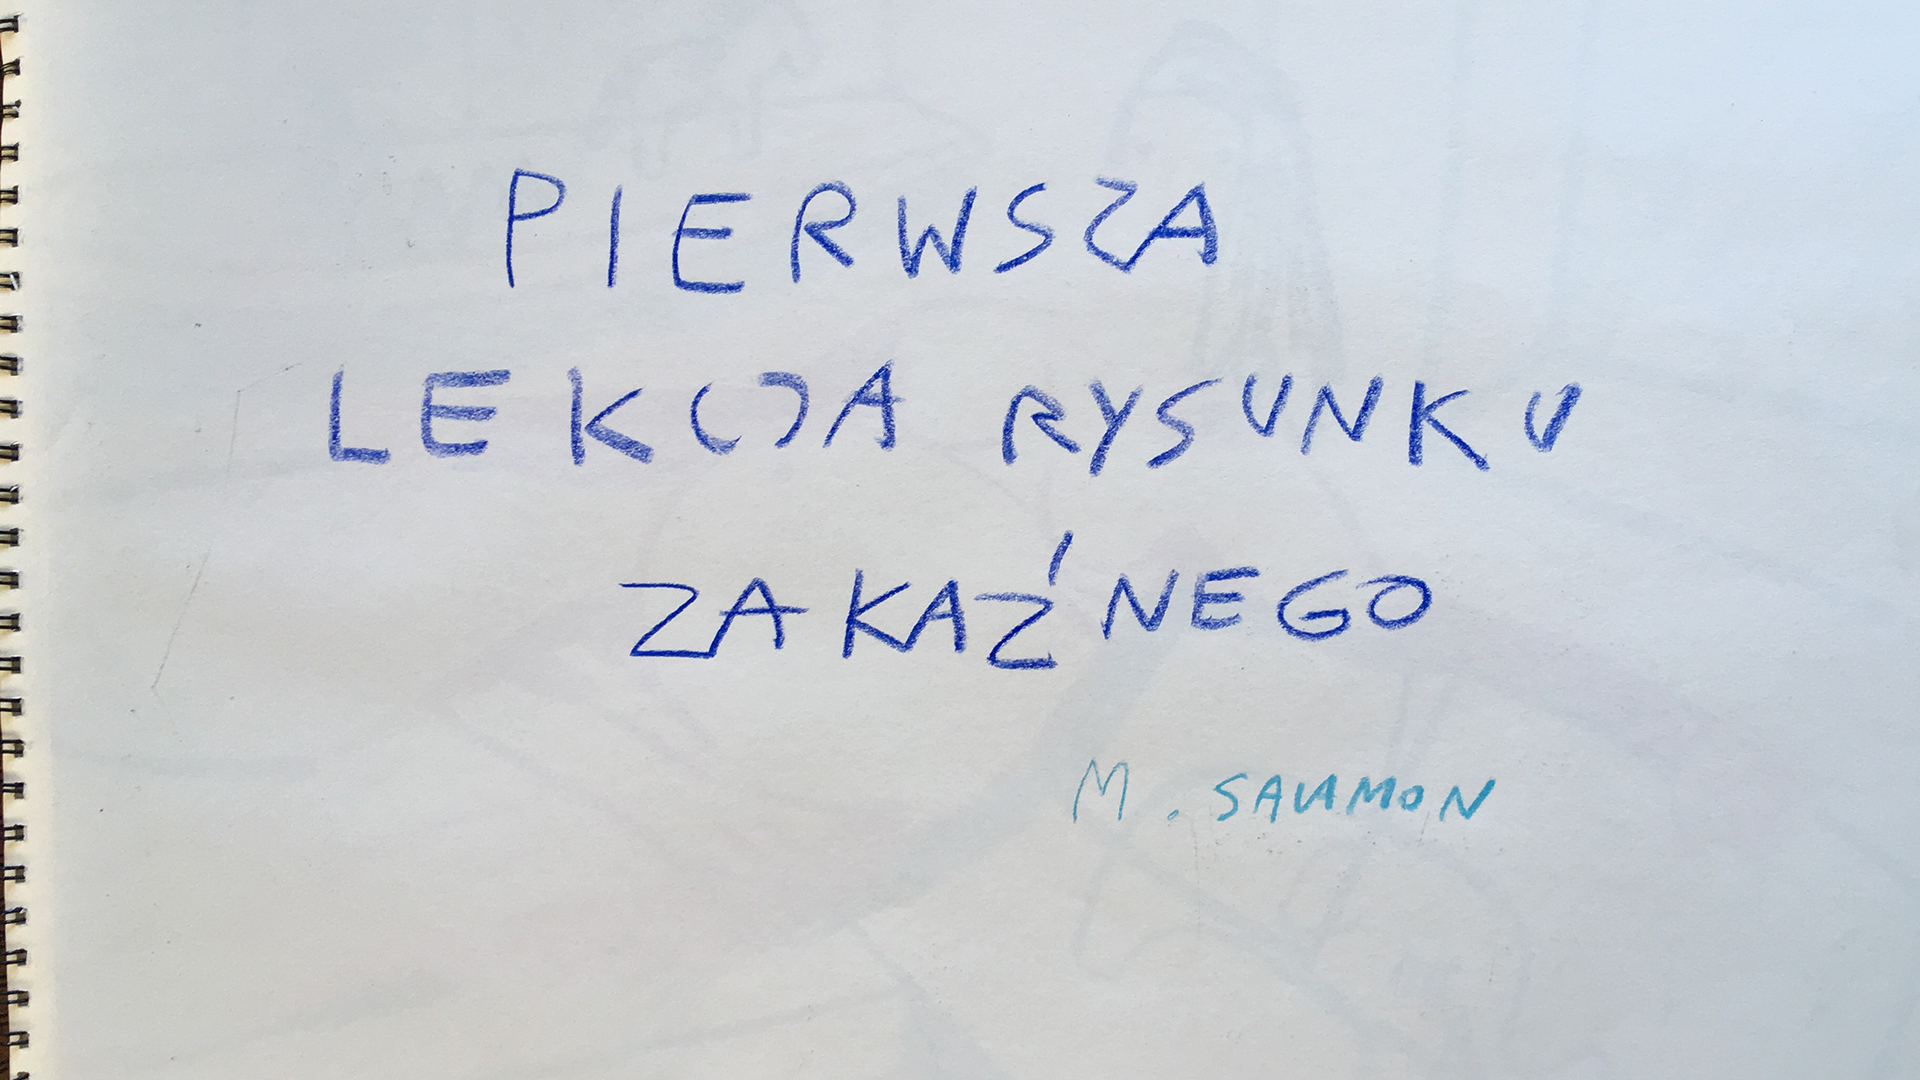 PIERWSZA
LEKCJA RYSUNKU
ZAKAŹNEGO
M. SALAMON